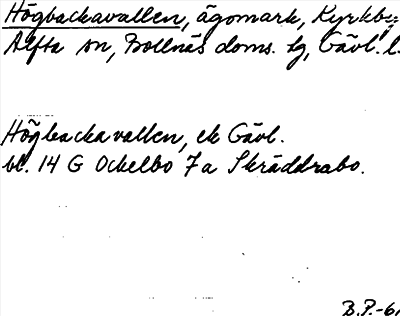 Högbackavallen, ägomark, Kyrkby,
Alfta sn, Bollnäs doms. tg, Gävl. l.
Högbackavallen, ek Gävl.
bl. 14 G Ockelbo 7 a Skräddrabo.
B.P.-61